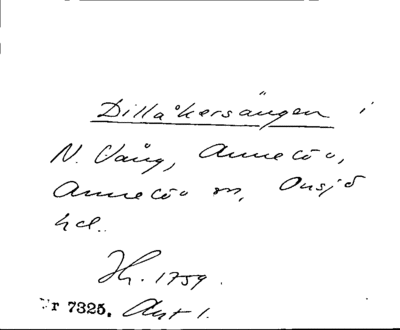 Dillåkersängen i
N. Vång, Annelöv,
Annelöv sn, Onsjö
hd.
Jh. 1759.
Nr 7325. Akt 1.